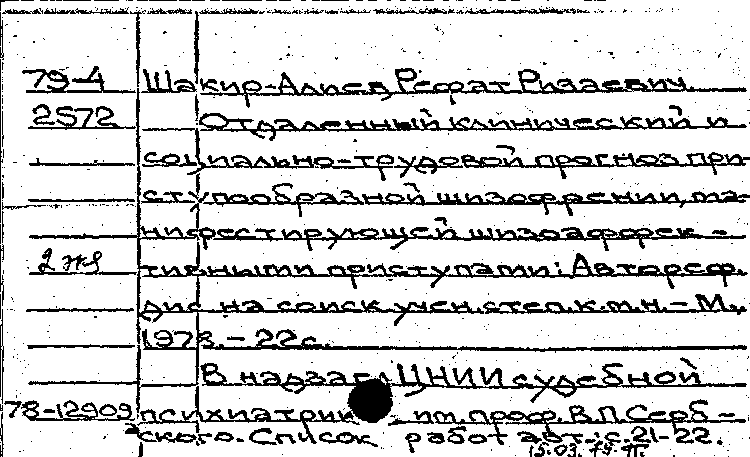 79-4 Шакир-Алиев Рефат Ризаевич.
2572 Отдаленный клинический и
социально-трудовой прогноз при-
ступообразной шизофрении, ма-
нифестирующей шизоаффек-
2 экз тивными приступами: Автореф.
дис на соиск учен. степ. к.м.н. - М.,
1978. - 22 с.
В надзаг. ЦНИИ судебной
78-12909 психиатрии им. проф. В.П. Серб-
ского. Список работ авт.: с. 21-22.
15.03.79.